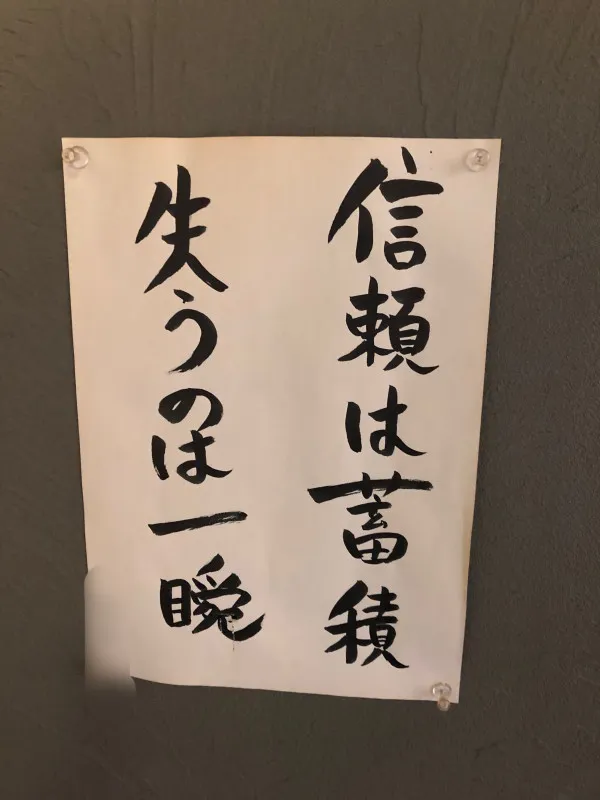 信頼は蓄積
失うのは一瞬